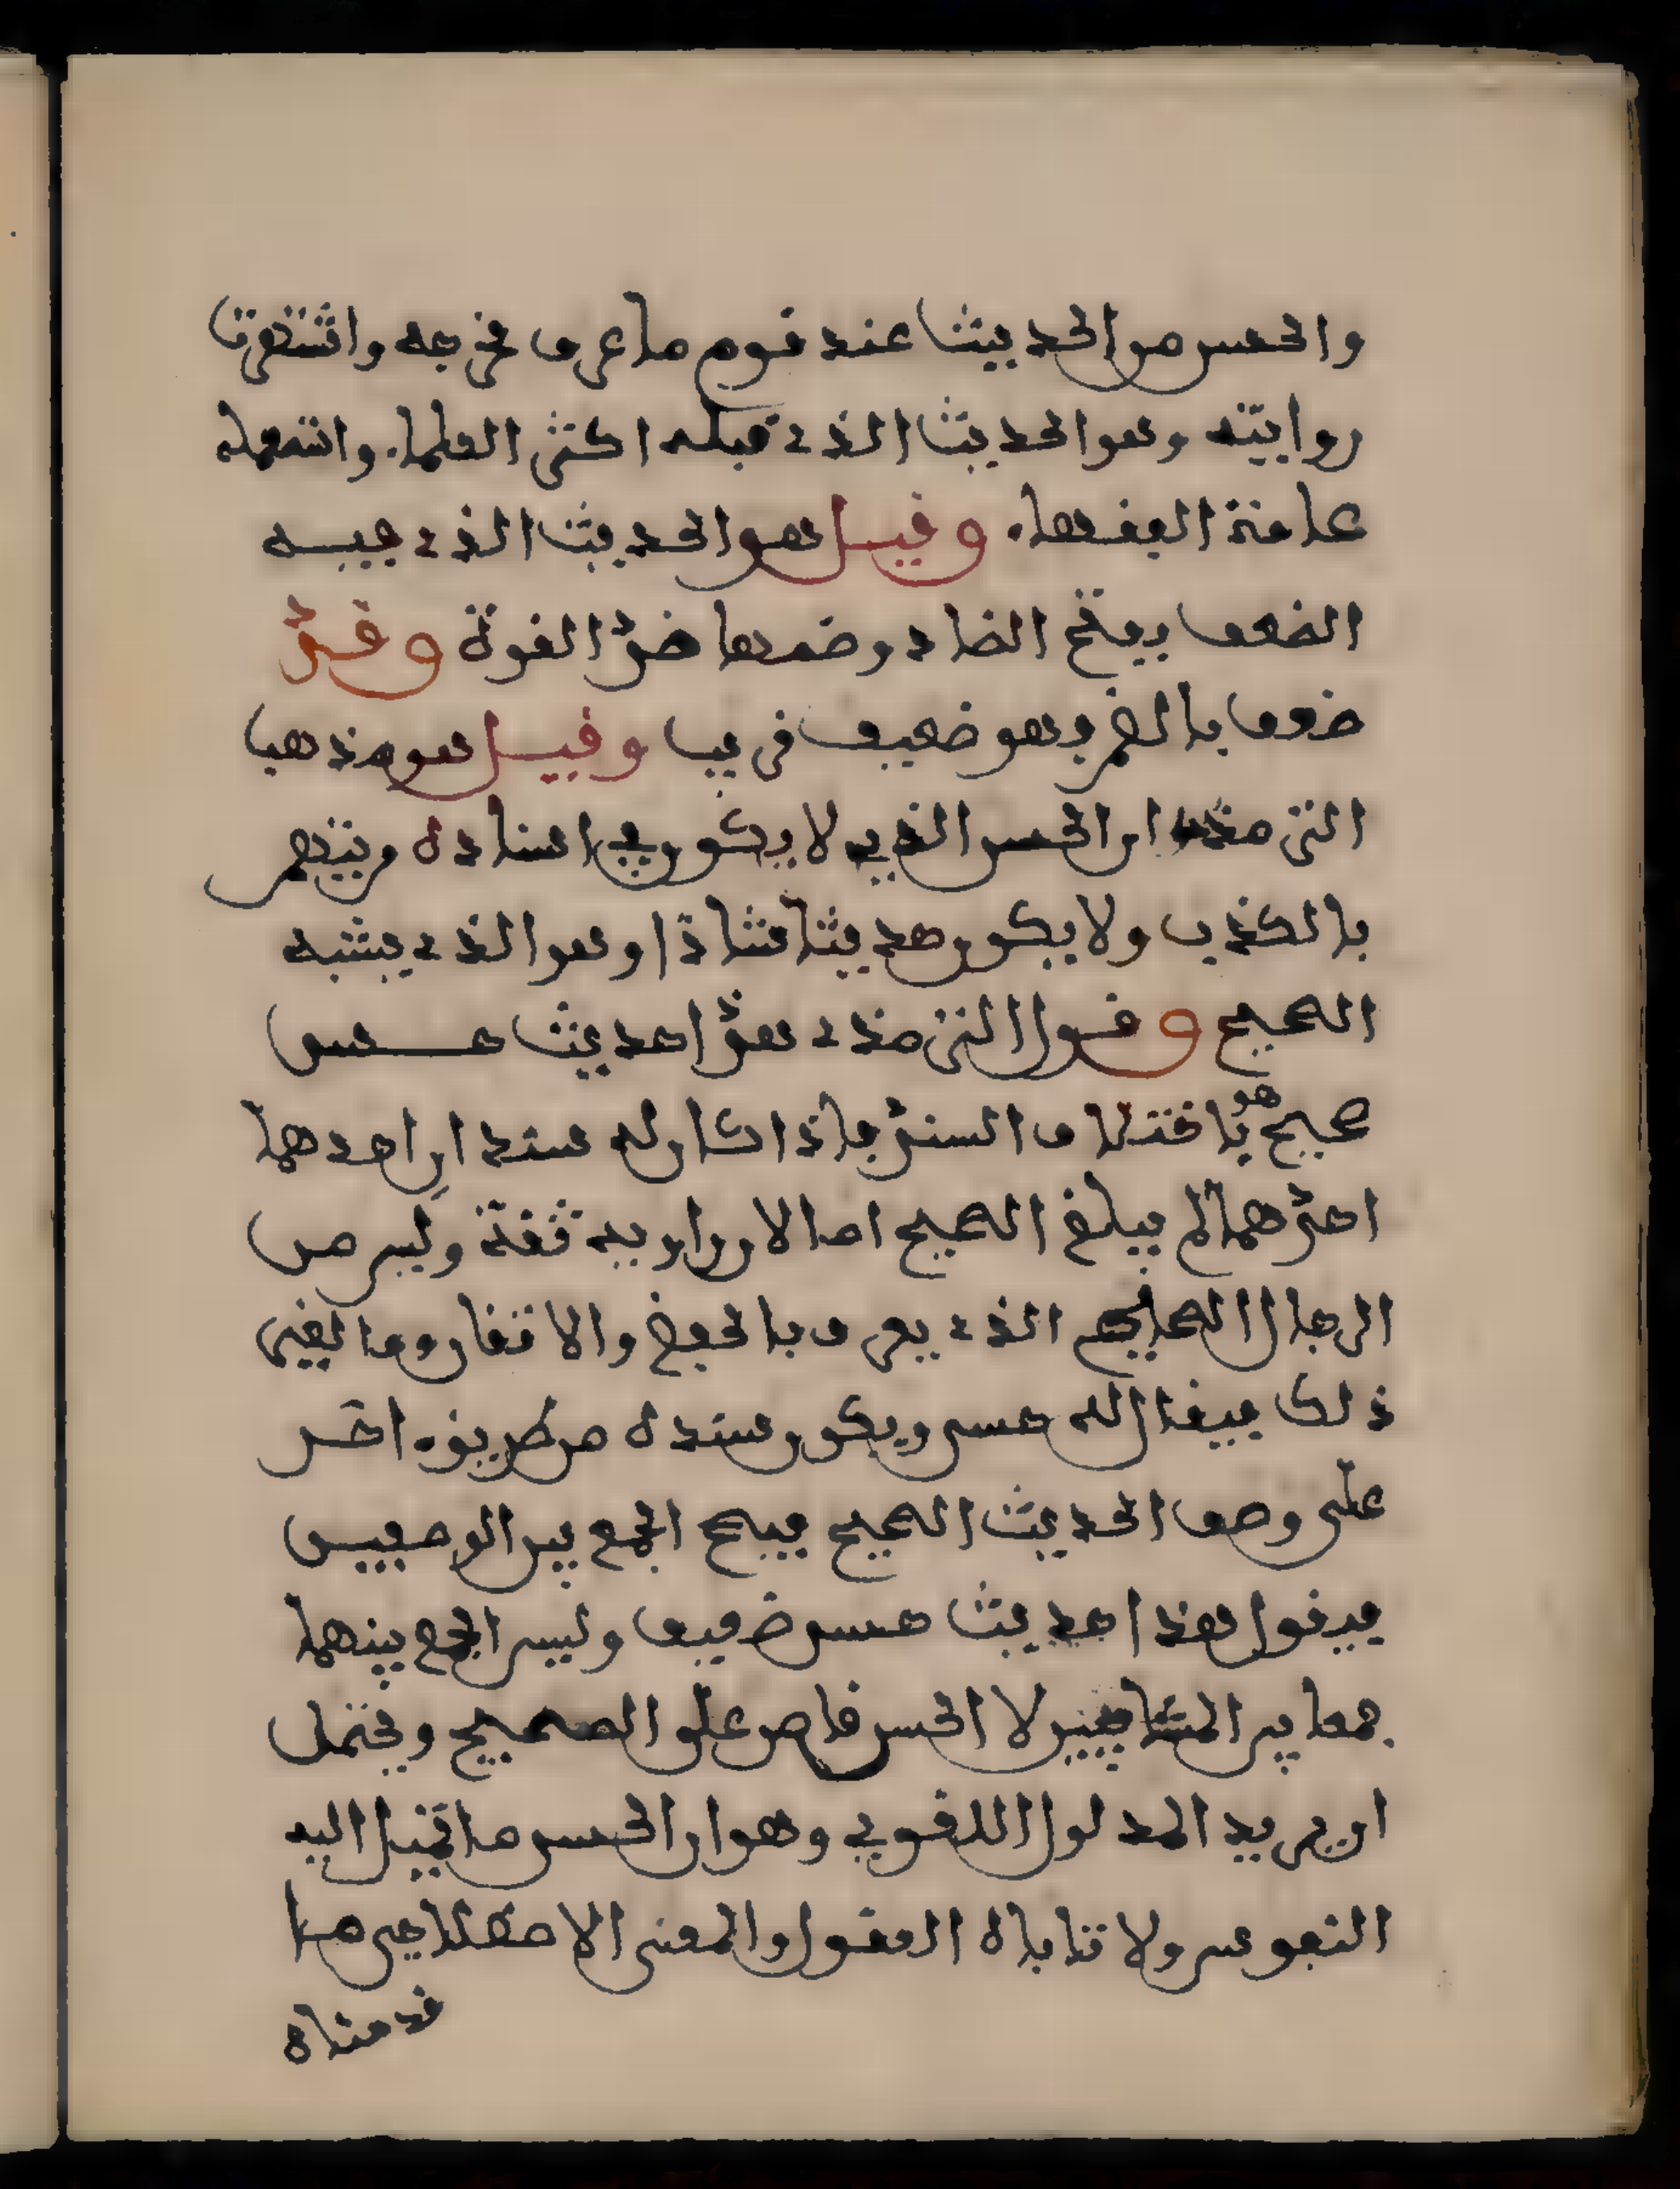 والحسن من الحديث عند قوم ما عرف مخرجه واشتهرت
روايته وهو الحديث الذي قبله اكثر العلماء واستعمله
عامة الفقهاء وقيل هو الحديث الذي فيه
الضعف بفتح الضاد وضمها ضد القوة وقد
ضعف بالضم وهو ضعيف قريب وقيل هو مذهب
الترمذي ان الحسن الذي لا يكون في اسناده من يتهم
بالكذب ولا يكون حديثا شاذا وهو الذي يشبه
الصحيح وقول الترمذي هذا حديث حسن
صحيح هو باختلاف السند فاذا كان له سندان احدهما
احدهما لم يبلغ الصحيح اما لان راويه ثقة وليس من
الرجال الصحيح الذي يعرف بالحفظ والاتقان واما لغير
ذلك فيقال له حسن ويكون سنده من طريق اخر
على وصف الحديث الصحيح فيصح الجمع بين الوصفين
فيقول هذا حديث حسن ضعيف وليس الجمع بينهما
جمعا بين المتنافيين لا الحسن قاصر على الصحيح ويحتمل
ان يريد المدلول اللغوي وهو ان الحسن ما تميل اليه
النفوس ولا تاباه العقول والمعنى الاصطلاحي ما
قدمناه